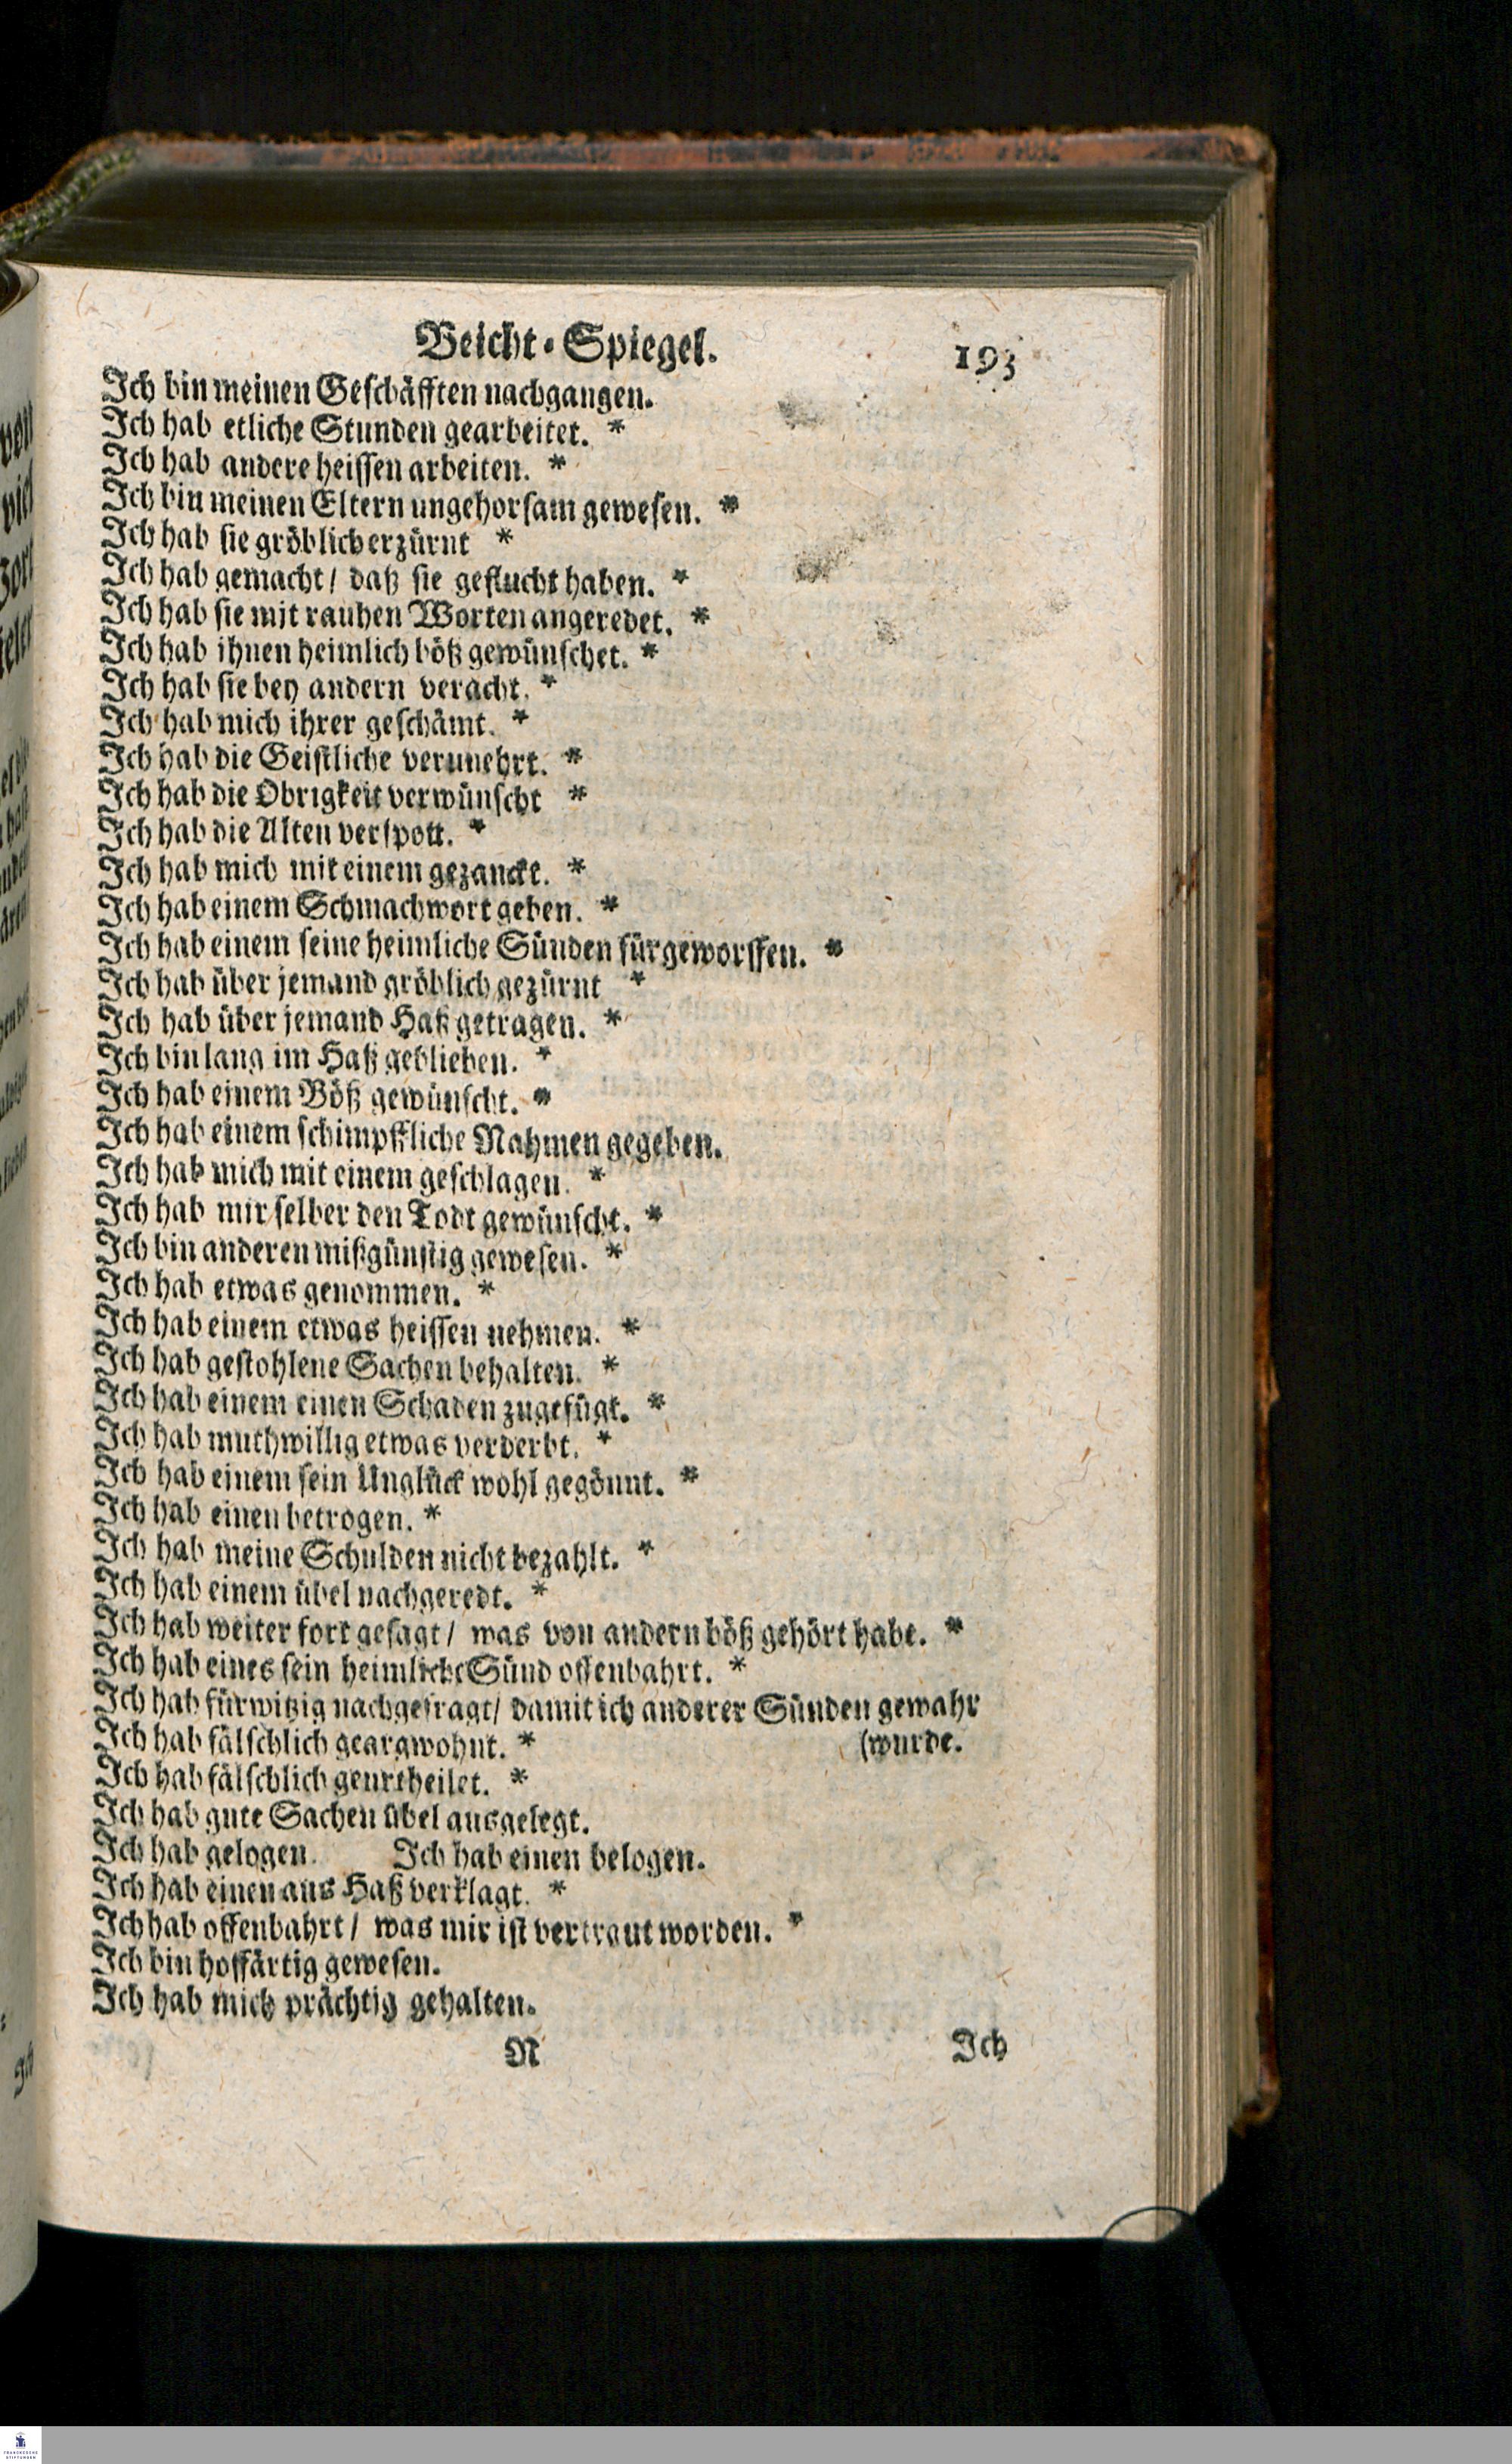 Beicht-Spiegel. 193
Ich bin meinen Geschäfften nachgangen.
Ich hab etliche Stunden gearbeitet. *
Ich hab andere heissen arbeiten. *
Ich bin meinen Eltern ungehorsam gewesen. *
Ich hab sie gröblich erzürnt *
Ich hab gemacht / daß sie geflucht haben. *
Ich hab sie mit rauhen Worten angeredet. *
Ich hab ihnen heimlich böß gewünschet. *
Ich hab sie bey andern veracht. *
Ich hab mich ihrer geschämt. *
Ich hab die Geistliche verunehrt. *
Ich hab die Obrigkeit verwünscht *
Ich hab die Alten verspott. *
Ich hab mich mit einem gezanckt. *
Ich hab einem Schmachwort geben. *
Ich hab einem seine heimliche Sünden fürgeworffen. *
Ich hab über jemand gröblich gezürnt *
Ich hab über jemand Haß getragen. *
Ich bin lang im Haß geblieben. *
Ich hab einem Böß gewünscht. *
Ich hab einem schimpffliche Nahmen gegeben.
Ich hab mich mit einem geschlagen. *
Ich hab mir selber den Todt gewünscht. *
Ich bin anderen mißgünstig gewesen. *
Ich hab etwas genommen. *
Ich hab einem etwas heissen nehmen. *
Ich hab gestohlene Sachen behalten. *
Ich hab einem einen Schaden zugefügt. *
Ich hab muthwillig etwas verderbt. *
Ich hab einem sein Unglück wohl gegönnt. *
Ich hab einen betrogen. *
Ich hab meine Schulden nicht bezahlt. *
Ich hab einem übel nachgeredt. *
Ich hab weiter fort gesagt / was von andern böß gehört habe. *
Ich hab eines sein heimliche Sünd offenbahrt. *
Ich hab fürwitzig nachgefragt / damit ich anderer Sünden gewahr
Ich hab fälschlich geargwohnt. * (wurde.
Ich hab fälschlich geurtheilet. *
Ich hab gute Sachen übel ausgelegt.
Ich hab gelogen. Ich hab einen belogen.
Ich hab einen aus Haß verklagt. *
Ich hab offenbahrt / was mir ist vertraut worden. *
Ich bin hoffärtig gewesen.
Ich hab mich prächtig gehalten.
N Ich